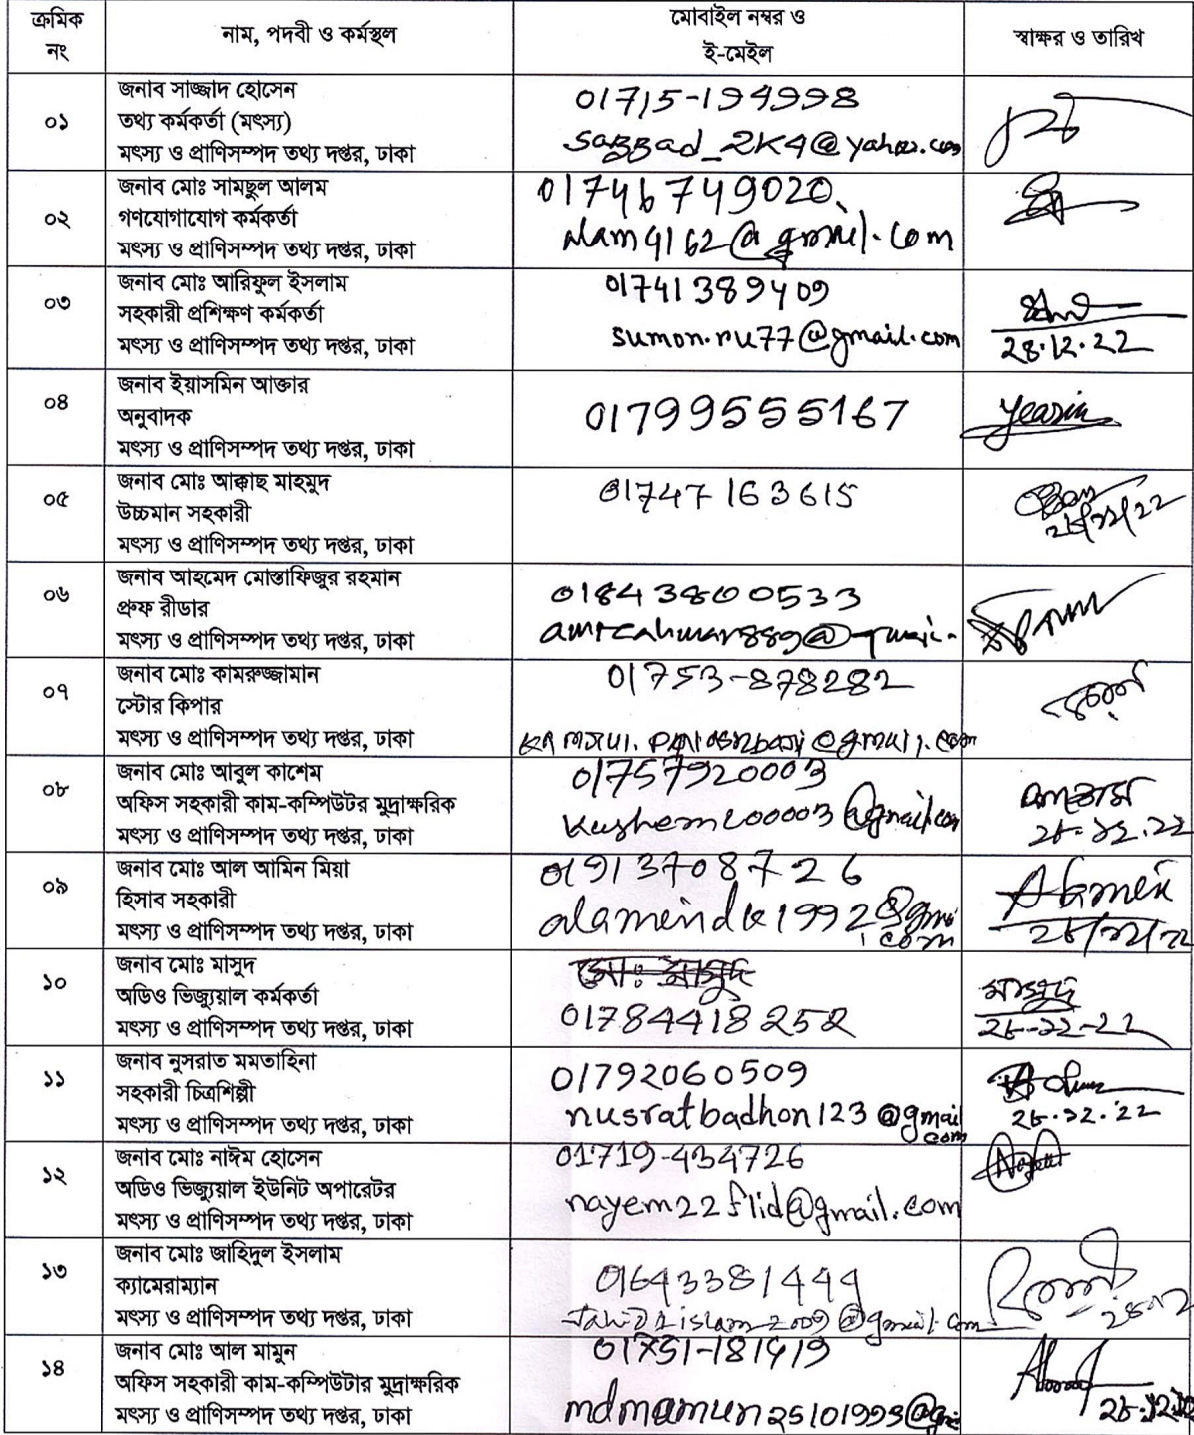 ক্রমিক নং
নাম, পদবী ও কর্মস্থল
মোবাইল নম্বর ও
ই-মেইল
স্বাক্ষর ও তারিখ
০১
জনাব সাজ্জাদ হোসেন
তথ্য কর্মকর্তা (মৎস্য)
মৎস্য ও প্রাণিসম্পদ তথ্য দপ্তর, ঢাকা
01715-194998
sazzad_2k4@yahoo.com
০২
জনাব মোঃ সামছুল আলম
গণযোগাযোগ কর্মকর্তা
মৎস্য ও প্রাণিসম্পদ তথ্য দপ্তর, ঢাকা
01746749020
alam4162@gmail.com
০৩
জনাব মোঃ আরিফুল ইসলাম
সহকারী প্রশিক্ষণ কর্মকর্তা
মৎস্য ও প্রাণিসম্পদ তথ্য দপ্তর, ঢাকা
01741389409
sumon.ru77@gmail.com
28.12.22
০৪
জনাব ইয়াসমিন আক্তার
অনুবাদক
মৎস্য ও প্রাণিসম্পদ তথ্য দপ্তর, ঢাকা
01799555167
০৫
জনাব মোঃ আক্কাছ মাহমুদ
উচ্চমান সহকারী
মৎস্য ও প্রাণিসম্পদ তথ্য দপ্তর, ঢাকা
01747163615
০৬
জনাব আহমেদ মোস্তাফিজুর রহমান
প্রুফ রীডার
মৎস্য ও প্রাণিসম্পদ তথ্য দপ্তর, ঢাকা
01843800533
০৭
জনাব মোঃ কামরুজ্জামান
স্টোর কিপার
মৎস্য ও প্রাণিসম্পদ তথ্য দপ্তর, ঢাকা
01753-878282
০৮
জনাব মোঃ আবুল কাশেম
অফিস সহকারী কাম-কম্পিউটর মুদ্রাক্ষরিক
মৎস্য ও প্রাণিসম্পদ তথ্য দপ্তর, ঢাকা
01757920003
২৮-১২.২২
০৯
জনাব মোঃ আল আমিন মিয়া
হিসাব সহকারী
মৎস্য ও প্রাণিসম্পদ তথ্য দপ্তর, ঢাকা
01913708726
২৮/১২/২২
১০
জনাব মোঃ মাসুদ
অডিও ভিজ্যুয়াল কর্মকর্তা
মৎস্য ও প্রাণিসম্পদ তথ্য দপ্তর, ঢাকা
মোঃ মাসুদ
01784418252
মাসুদ
২৮-১২-২২
১১
জনাব নুসরাত মমতাহিনা
সহকারী চিত্রশিল্পী
মৎস্য ও প্রাণিসম্পদ তথ্য দপ্তর, ঢাকা
01792060509
nusratbadhon123@gmail
com
২৮.১২.২২
১২
জনাব মোঃ নাঈম হোসেন
অডিও ভিজ্যুয়াল ইউনিট অপারেটর
মৎস্য ও প্রাণিসম্পদ তথ্য দপ্তর, ঢাকা
01719-434726
nayem22flid@gmail.com
১৩
জনাব মোঃ জাহিদুল ইসলাম
ক্যামেরাম্যান
মৎস্য ও প্রাণিসম্পদ তথ্য দপ্তর, ঢাকা
01643381444
১৪
জনাব মোঃ আল মামুন
অফিস সহকারী কাম-কম্পিউটার মুদ্রাক্ষরিক
মৎস্য ও প্রাণিসম্পদ তথ্য দপ্তর, ঢাকা
01751-181419
mdmamun25101993@